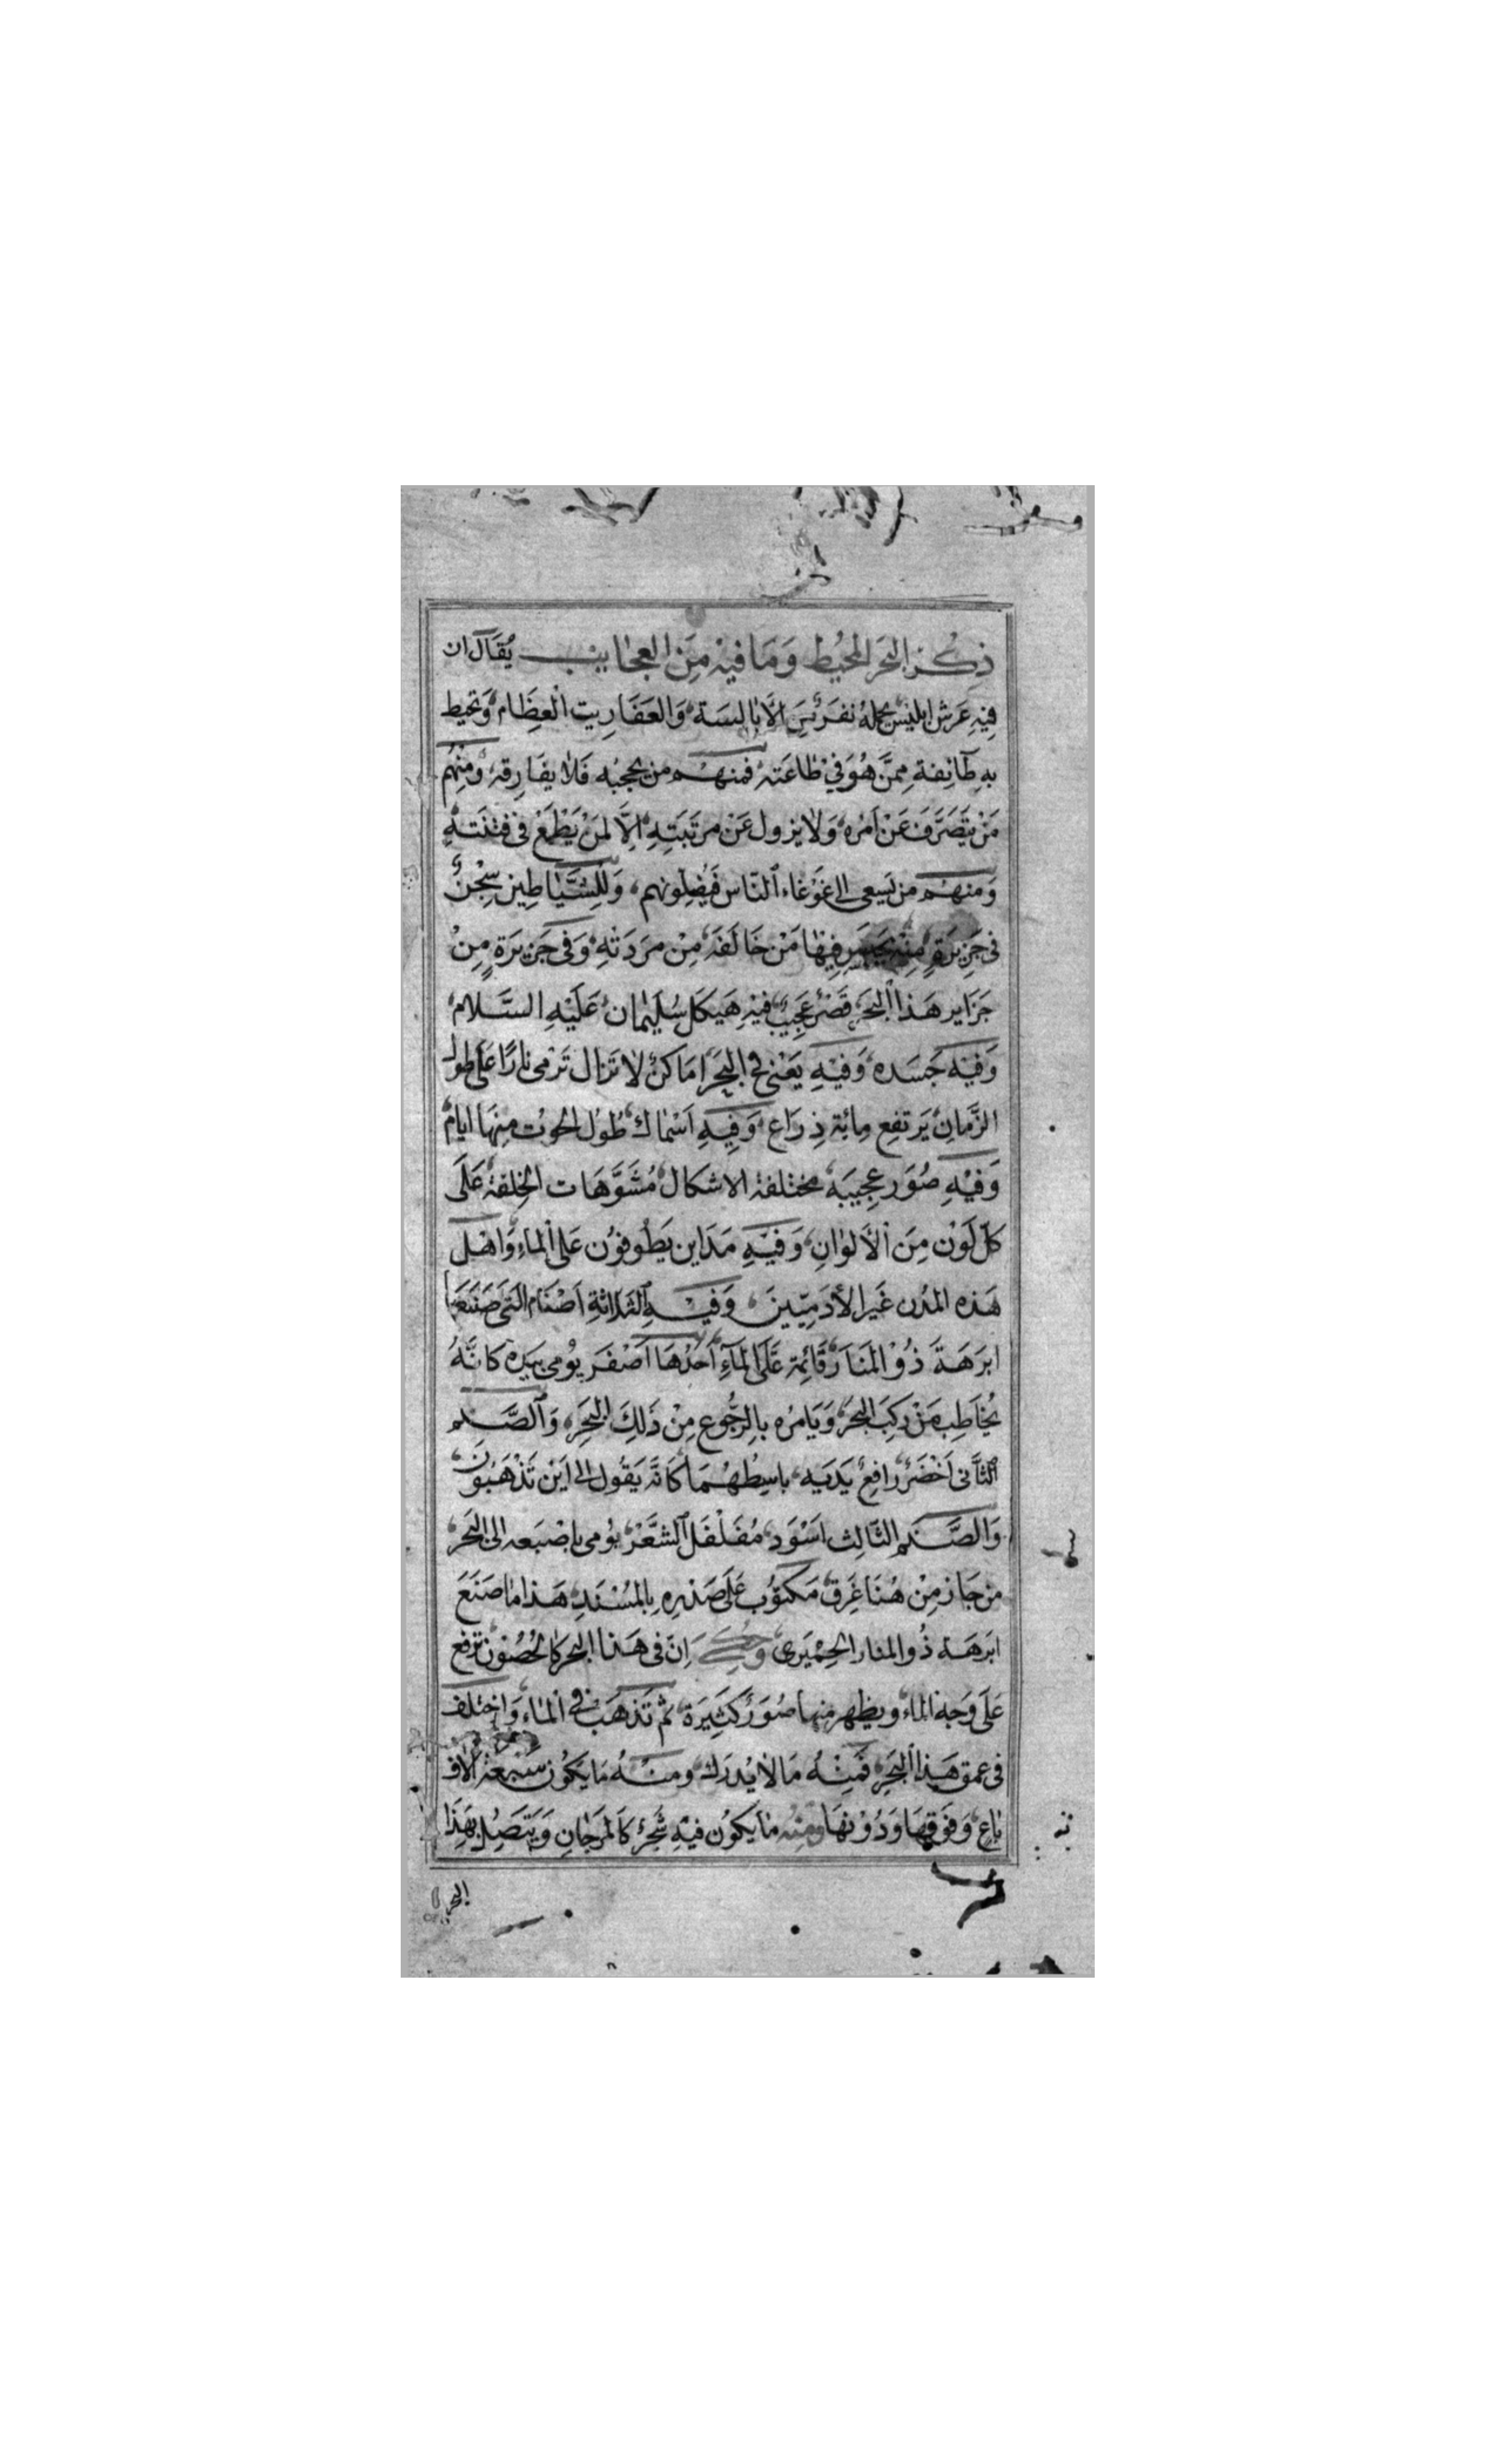 ذِكْرُ البَحَرِ المُحيُط وَمَا فيِهِ مِنَ العجٰايب يُقَالَ ان
فِيِهِ عَرشُ ابليْسَ يحملهُ نفَرٌ مِنَ الاَبٰالِسَةِ وَالعَفَارِيت الْعِظَامِ وَتحيط
بهِ طآئِفة مِمَّنَ هُوَ فيْ طٰاعَتهِ فمنهُم من يحجبُه فَلاٰ يفَارِقهُ وَمنِهُم
مَنْ يتَصَرَّفَ عَنْ اَمره وَلاٰ يزول عَنْ مرتَبَتِهِ اِلَّا لمَنْ يَطْمَعْ فى فتْنَتهِ
وَمنهُم من يَسعى الى غَوْغَاء ٱلنّاس فَيُضِلّونهم، وَللِشَّيٰاطِين سِجْنٌ
فى جَزِيرَةٍ مِنْهُ يحَبسَ فِيِهٰا مَنْ خَالَفهَ مِنْ مَردَتهِ وَفى جَزيرَةٍ مِنْ
جَزَاير هَذا اْلبحَرِ، قَصْرٌ عَجِيبٌ فيِهِ هَيكَل سُلَيمٰانَ عَلَيْهِ السَّلام،
وَفيْه جَسَده، وَفيْهِ يَعْنى فى البَحَرْ امَاكنٌ لاٰ تَزال تَرْمى نارًا عَلَى طول
الزَّمانِ يَرتفع مِائِة ذِرَاع وَفِيِهِ اَسْمٰاك طُوُل الحوُت مِنهَا ايامٌ
وَفيْهِ صُوَر عجِيبَه مختلفة الاشكال مُشَوَّهَات الخِلقة عَلَى
كلّ لَوْن مِنَ اْلاَلوٰانِ، وَفيْهِ مَدَاين يَطُوفوُن عَلى اْلماءِ وَاهْل
هَذه المدُن غَير الأدَميِّينَ، وَفيْهِ ٱلثَلاثةِ اَصْنَام الّتى صَنَعَهَا
ابرَهَةَ ذُوْ المَنَارْ قَائِمَة عَلَى المآءِ اَحَدُهَا اَصْفَر يوُمى بيَدِه كانَّهُ
يُخاَطِب مَنْ ركِبَ البَحرَ وَيَامرُه بالِرُّجوُع مِنْ ذَلِكَ البَحَرِ، وَٱلصَّنَم
ٱلثاَّنى اَخْضَرٌ رافِعٌ يَدَيه، باسِطُهُمَا كَانَّه يَقُول الى اَيَنْ تَذْهَبوُنَ
وَالصَّنَم الثّالِث اَسْوَد، مُفَلْفَل ٱلشَّعَرْ، يوُمى باِصْبَعه الى البَحر،
من جَاز مِنْ هُنَا غَرِق، مَكتوُب عَلَى صَدْرِه بالمُسْنَدِ هَذا ماٰ صَنَعَ
ابرَهَة ذُو المنار الحِمْيَرى، وَحُكِىَ اِنَّ فى هَذا البحر كالحُصُوُن ترفع
عَلَى وَجهْ الماء، ويظهر منها صُوَرٌ كَثِيرَة، ثم تَذهَبُ في اْلماٰء، وَاختلف
فى عمق هَذا اْلبَحَرِ، فَمِنْهُ مَا لاٰ يُدرَك، ومنْهُ مَا يكوُن سَبعَة اْلاَف
باٰع، وَفَوَقهَا وَدُوْنهَا ومِنْهُ ماٰ يَكوُن فيْهِ شَجرٌ كاَلمرَجٰانِ وَيَتَصِلُ بِهَذَا
البحر